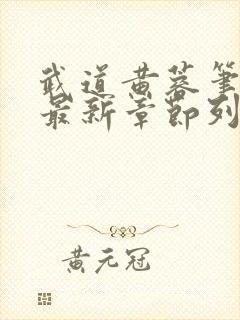 武道黄蓉笔
最新章节列
黄元冠